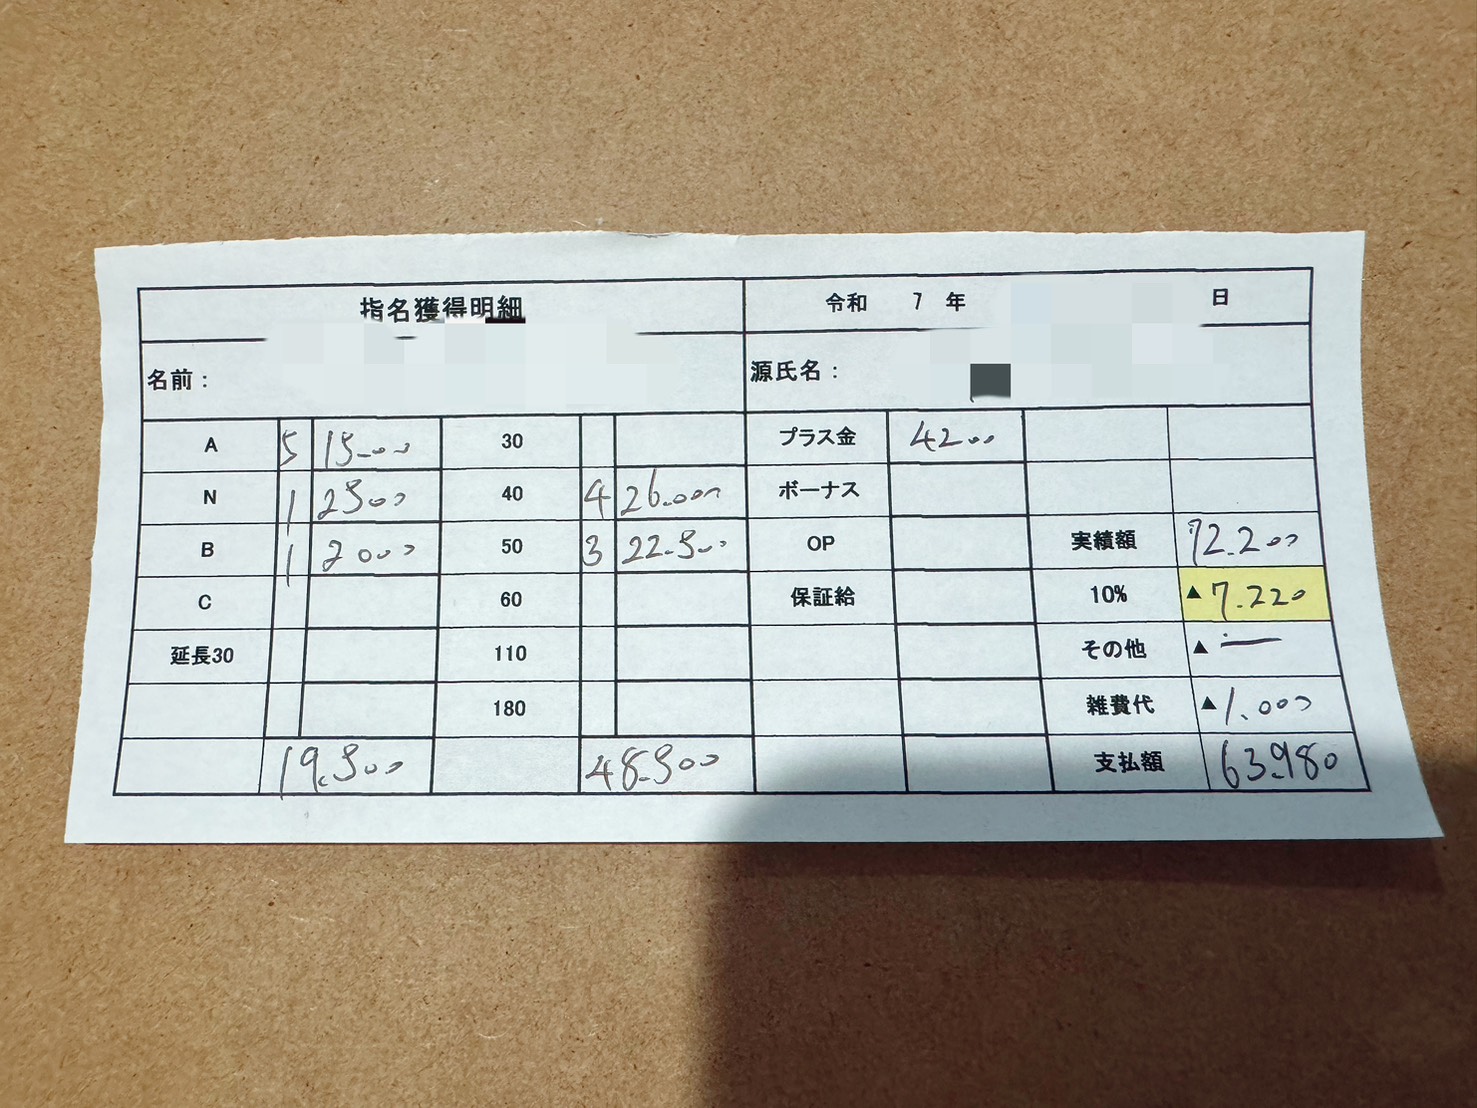 指名獲得明細 令和 7 年 日
名前： 源氏名：
A 5 15000 30 プラス金 4200
N 1 2500 40 4 26.000 ボーナス
B 1 2000 50 3 22.500 OP 実績額 72.200
C 60 保証給 10% ▲7.220
延長30 110 その他 ▲ ー
180 雑費代 ▲1.000
19.500 48.500 支払額 63.980